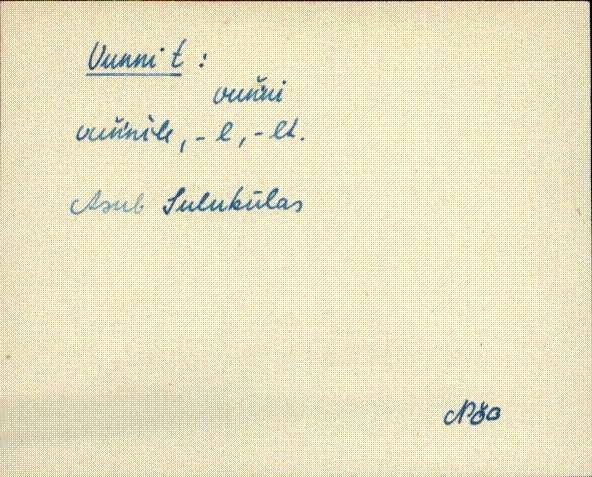 Vunni t :
vun̆ni
vun̆nile, -l, -lt.
Asub Sulukülas
Nõo